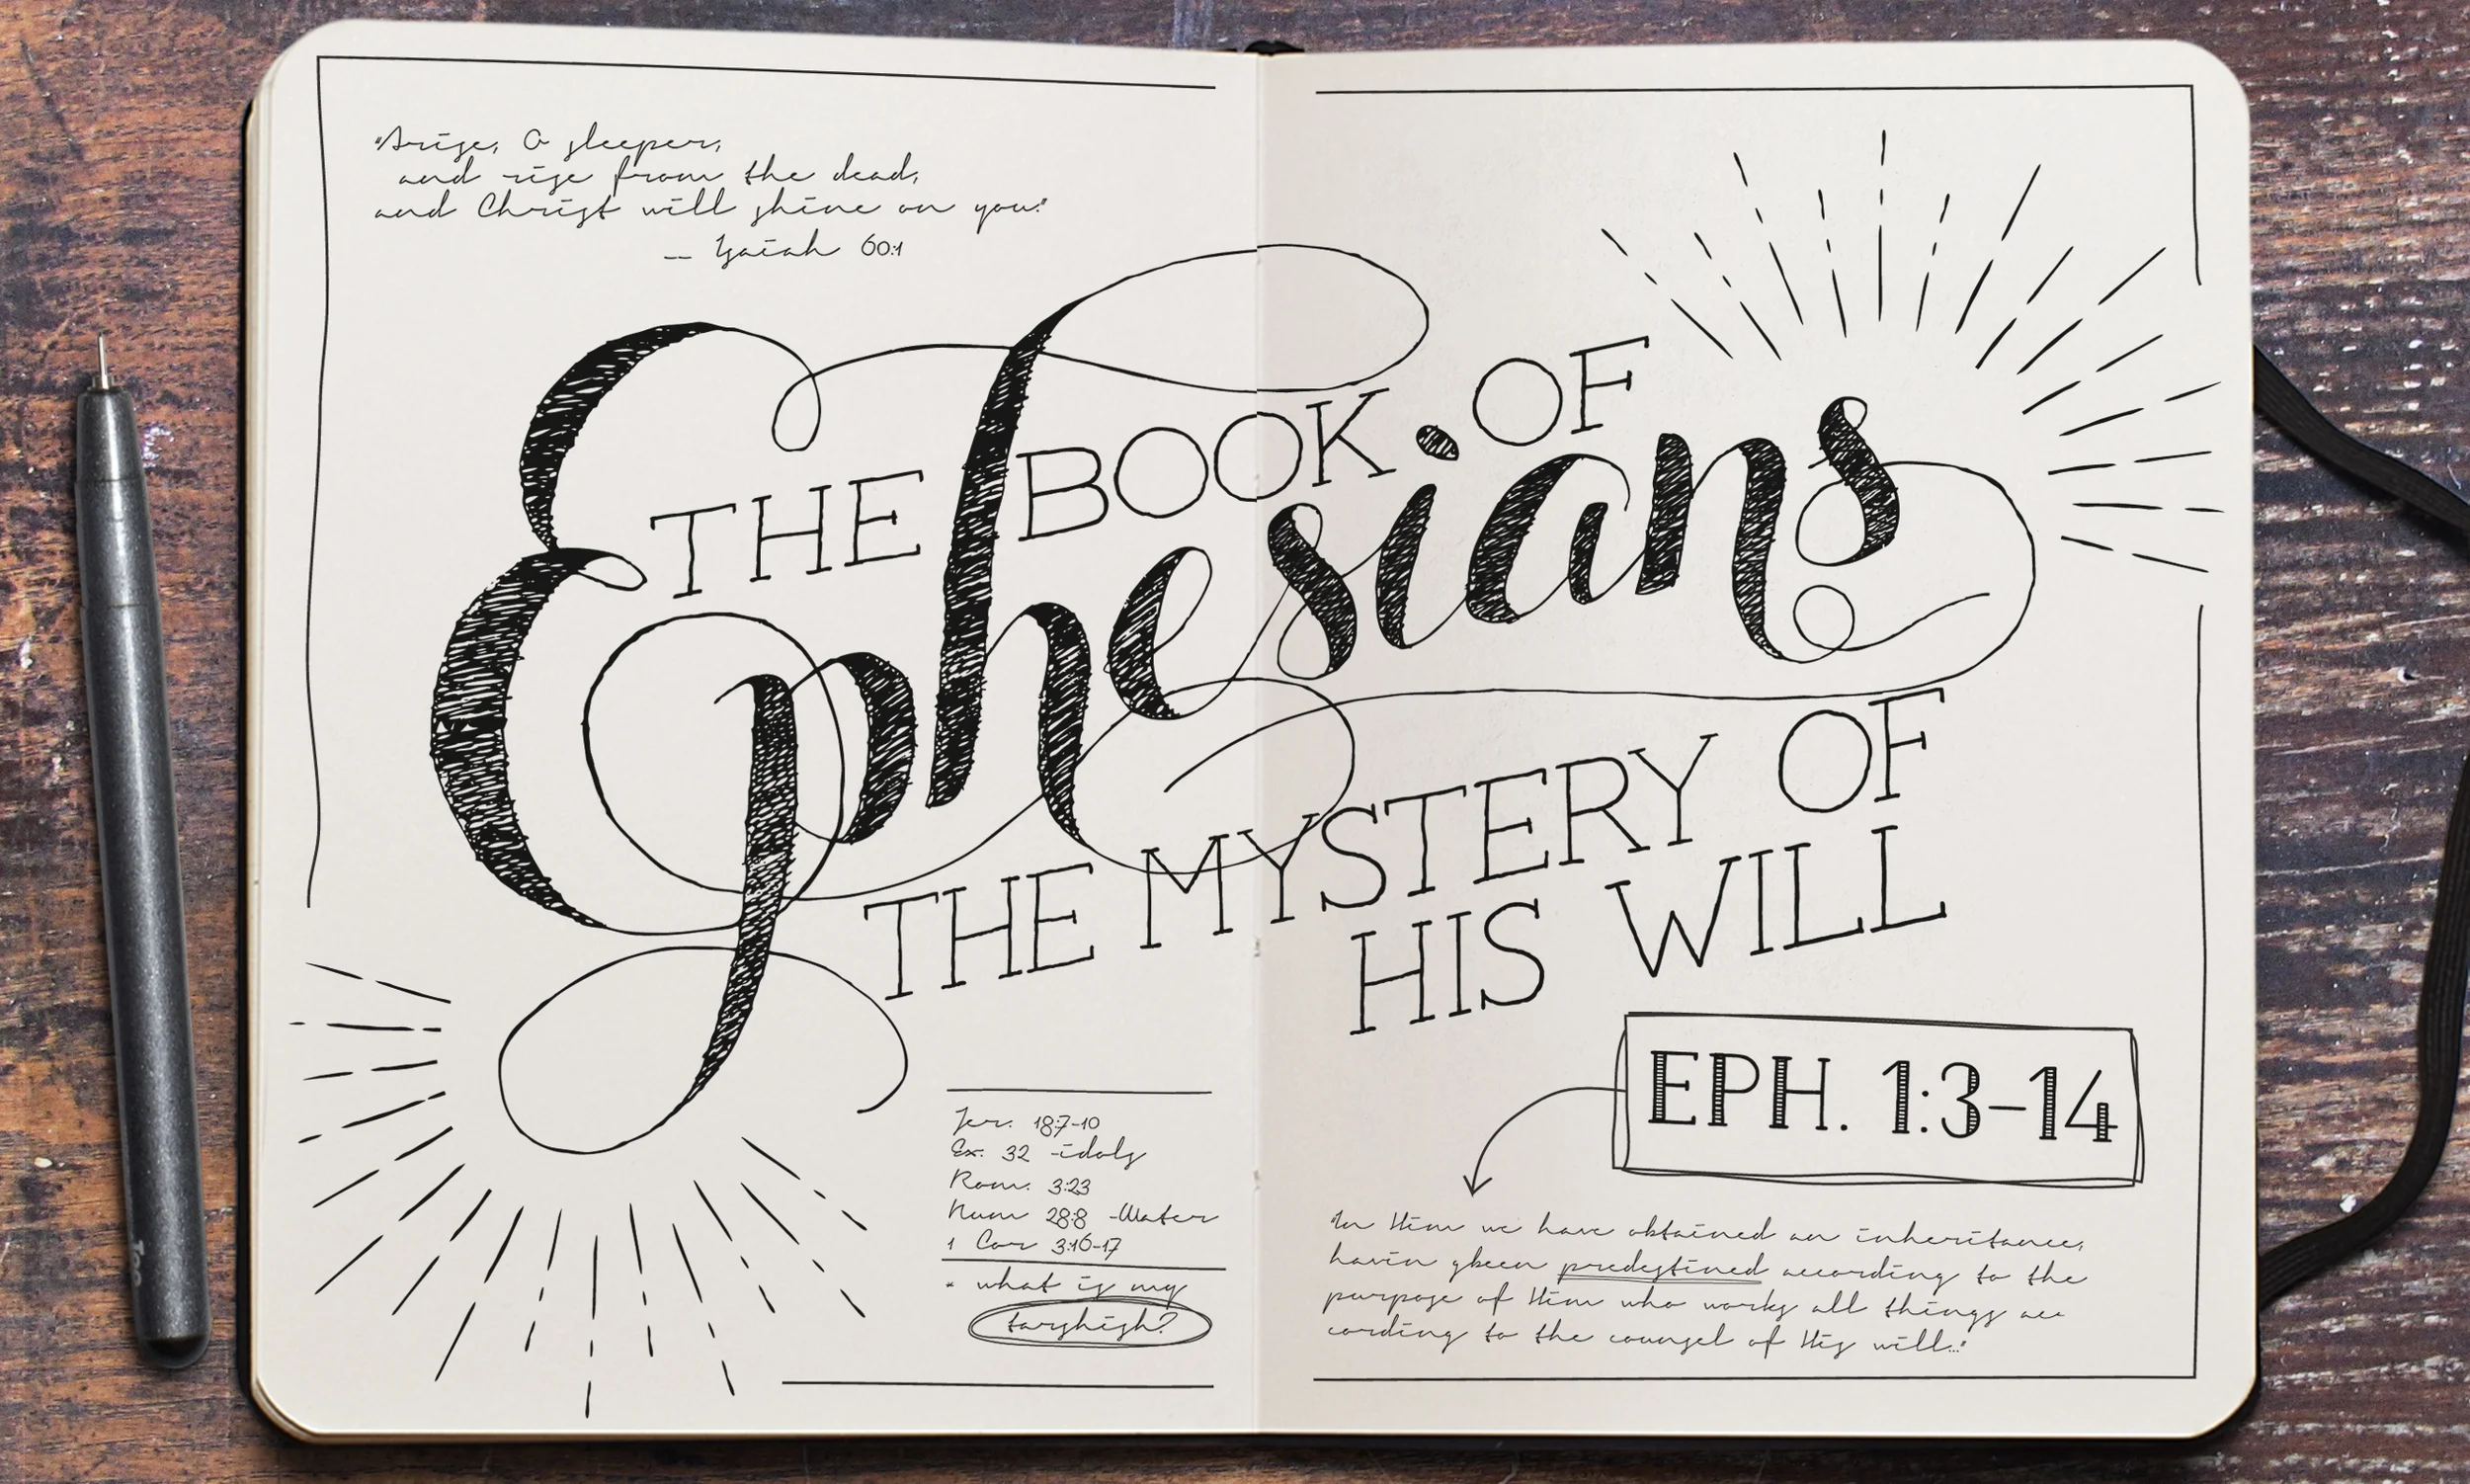 "Arise, O sleeper,
and rise from the dead,
and Christ will shine on you."
-- Isaiah 60:1
THE BOOK OF
Ephesians
THE MYSTERY OF
HIS WILL
Jer. 18:7-10
Ex. 32 -idols
Rom. 3:23
Num 28:8 -Water
1 Cor 3:16-17
- what is my
tarshish?
EPH. 1:3-14
"In Him we have obtained an inheritance,
havin gbeen predestined according to the
purpose of Him who works all things acc
cording to the counsel of His will..."